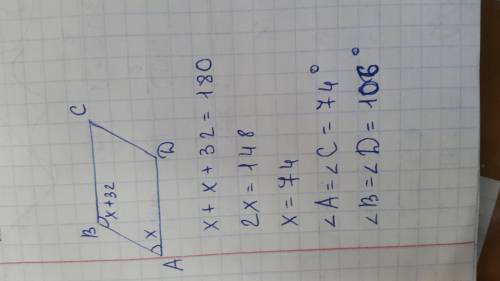 B
C
x+32
x
A
D
x+x+32=180
2x=148
x=74
∠A=∠C=74°
∠B=∠D=106°